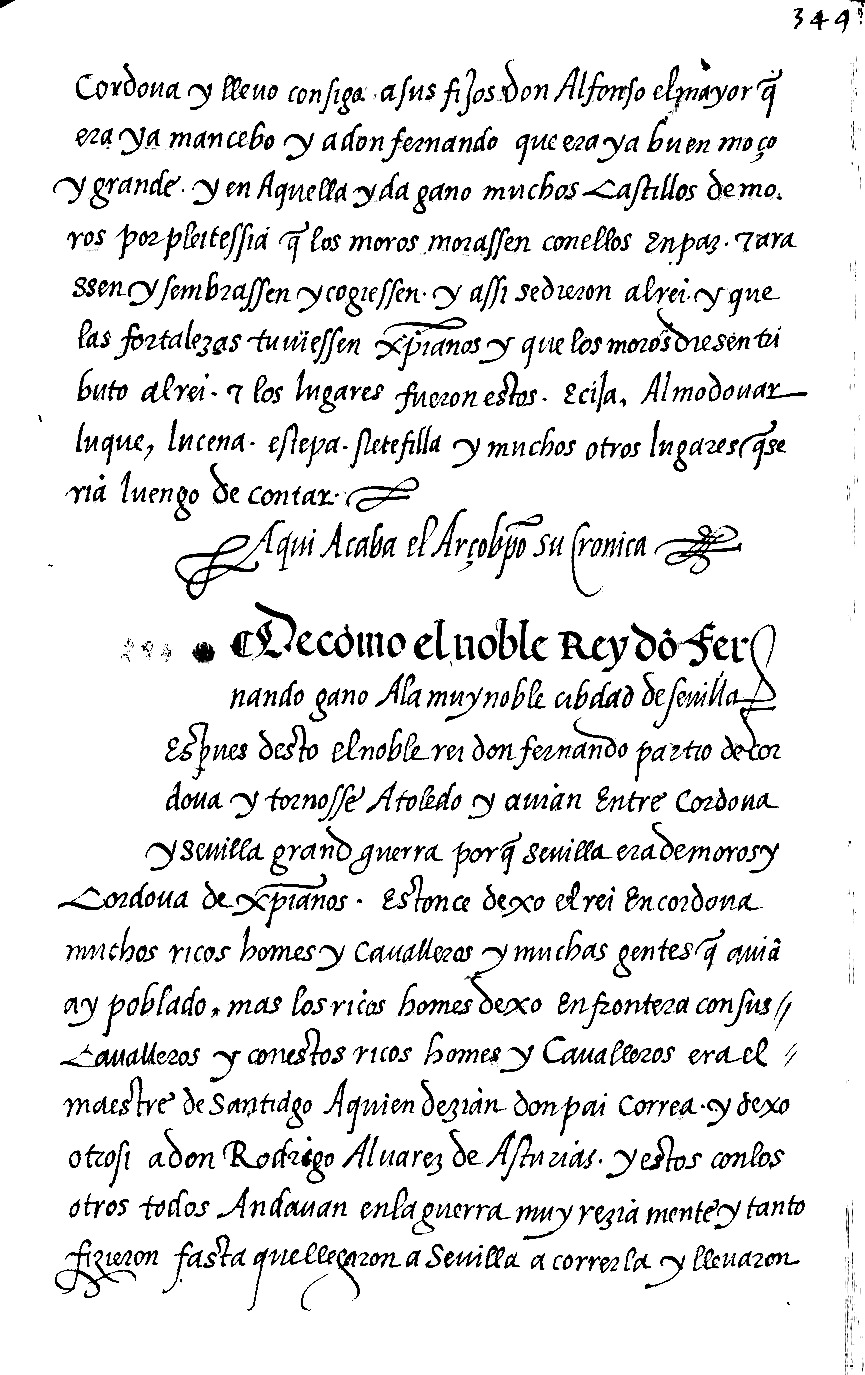 344
Cordoua y lleuo consigo a sus fijos don Alfonso el mayor q̃
era ya mancebo y a don fernando que era ya buen moço
y grande. y en Aquella yda gano muchos Castillos de mo.
ros por pleitessia q̃ los moros morassen con ellos En paz. ⁊ ara
ssen y sembrassen y cogiessen. y assi se dieron al rei. y que
las fortalezas tuuiessen xp̃ianos y que los moros diesen tri
buto al rei. ⁊ los lugares fueron estos. Ecija, Almodouar
luque, lucena. estepa. sietefilla y muchos otros lugares q̃ se
riá luengo de contar.
Aqui Acaba el Arçobp̃o su Cronica
De cómo el noble Rey dõ Fer
nando gano Ala muy noble cibdad de seuilla
Espues desto el noble rei don fernando partio de cor
doua y tornosse A toledo y auian Entre Cordoua
y Seuilla grand guerra porq̃ Seuilla era de moros y
Cordoua de xp̃ianos. Estonce dexo el rei En cordoua
muchos ricos homes y Caualleros y muchas gentes q̃ auiã
ay poblado, mas los ricos homes dexo En frontera con sus //
Caualleros y con estos ricos homes y Caualleros era el //
maestre de Santiago A quien dezian don pai Correa. y dexo
otrosi a don Rodrigo Aluarez de Asturias. y estos con los
otros todos Andauan en la guerra muy reziamente y tanto
fizieron fasta que llegaron a Seuilla a correrla y lleuaron